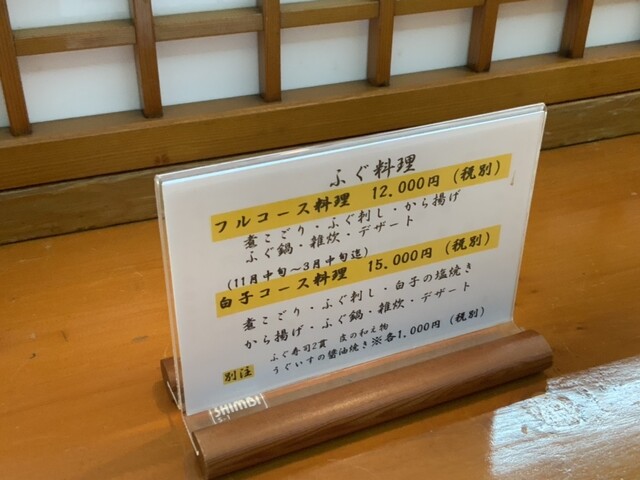 ふぐ料理
フルコース料理 12.000円(税別)
煮こごり・ふぐ刺し・から揚げ
ふぐ鍋・雑炊・デザート
(11月中旬～3月中旬迄)
白子コース料理 15.000円(税別)
煮こごり・ふぐ刺し・白子の塩焼き
から揚げ・ふぐ鍋・雑炊・デザート
ふぐ寿司2貫 皮の和え物
別注 うぐいすの醤油焼き※各1.000円(税別)
SHIMBI